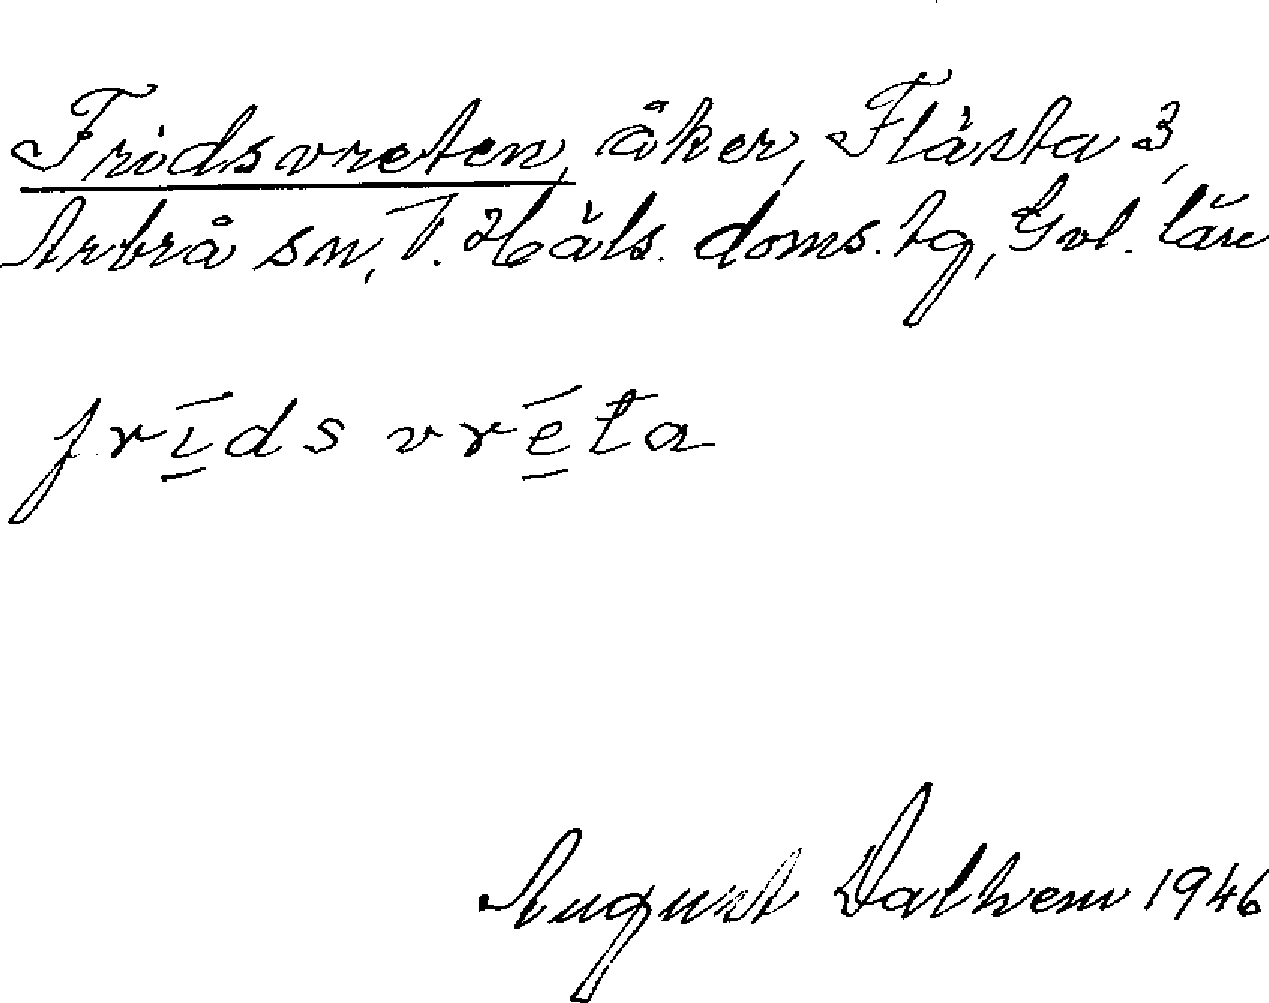 Fridsvreten, åker, Flästa 3,
Arbrå sn, V. Häls. doms. tg, Gvl. län
frīds vrēta
August Dalhem 1946